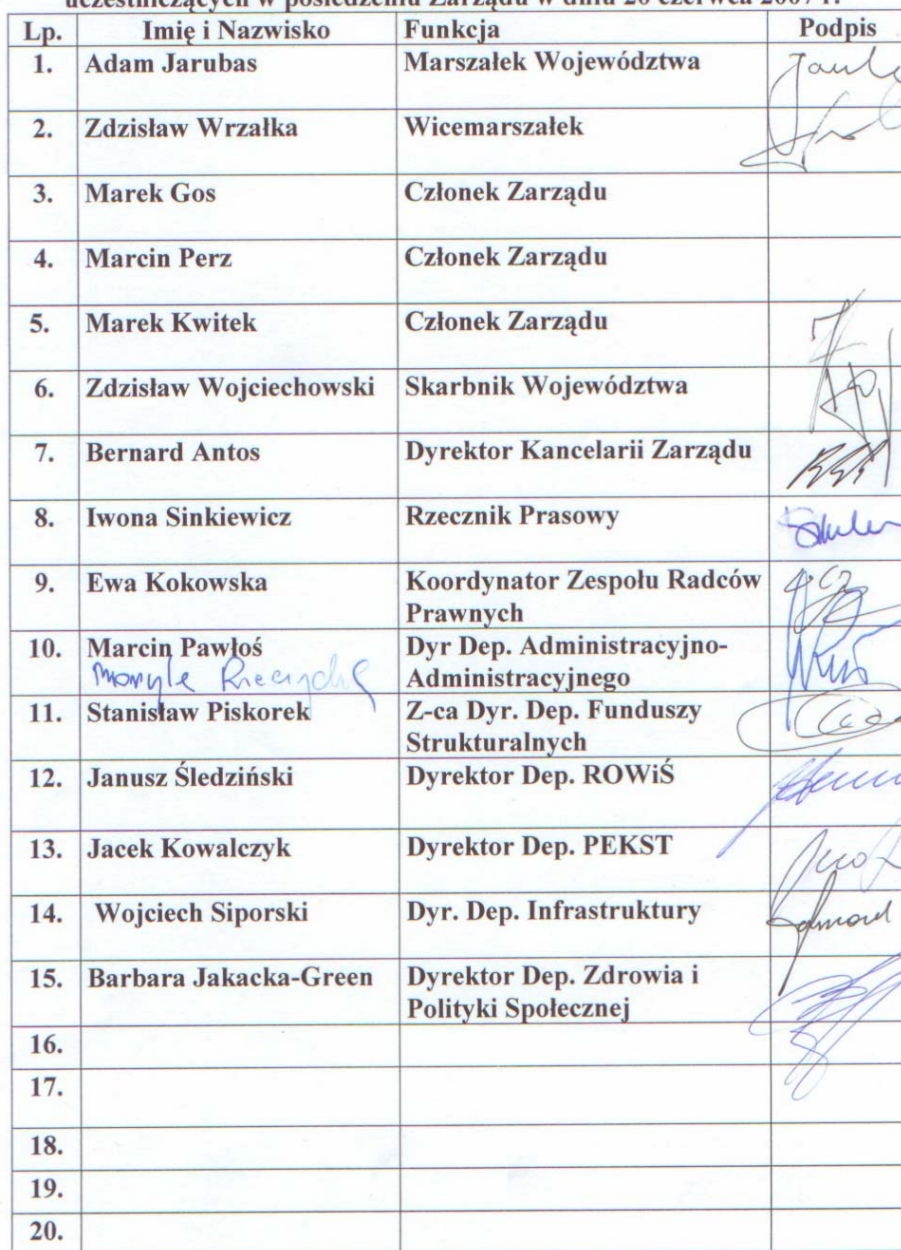 uczestniczących w posiedzeniu Zarządu w dniu 20 czerwca 2007 r.
Lp. Imię i Nazwisko Funkcja Podpis
1. Adam Jarubas Marszałek Województwa
2. Zdzisław Wrzałka Wicemarszałek
3. Marek Gos Członek Zarządu
4. Marcin Perz Członek Zarządu
5. Marek Kwitek Członek Zarządu
6. Zdzisław Wojciechowski Skarbnik Województwa
7. Bernard Antos Dyrektor Kancelarii Zarządu
8. Iwona Sinkiewicz Rzecznik Prasowy
9. Ewa Kokowska Koordynator Zespołu Radców
Prawnych
10. Marcin Pawłoś Dyr Dep. Administracyjno-
Administracyjnego
11. Stanisław Piskorek Z-ca Dyr. Dep. Funduszy
Strukturalnych
12. Janusz Śledziński Dyrektor Dep. ROWiŚ
13. Jacek Kowalczyk Dyrektor Dep. PEKST
14. Wojciech Siporski Dyr. Dep. Infrastruktury
15. Barbara Jakacka-Green Dyrektor Dep. Zdrowia i
Polityki Społecznej
16.
17.
18.
19.
20.